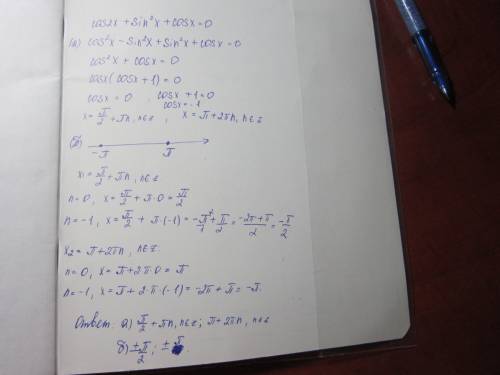 cos2x + sin²x + cosx = 0
а) cos²x - sin²x + sin²x + cosx = 0
cos²x + cosx = 0
cosx (cosx + 1) = 0
cosx = 0 , cosx + 1 = 0
cosx = -1
x = π/2 + πn, n∈z , x = π + 2πn, n∈z
б) -π π
x₁ = π/2 + πn, n∈z
n=0, x = π/2 + π·0 = π/2
n=-1, x = π/2 + π·(-1) = -π/1 + π/2 = -2π+π/2 = -π/2
x₂ = π + 2πn, n∈z.
n=0, x = π + 2π·0 = π
n=-1, x = π + 2·π·(-1) = -2π + π = -π.
Ответ: а) π/2 + πn, n∈z; π + 2πn, n∈z
б) ±π/2; ±π.